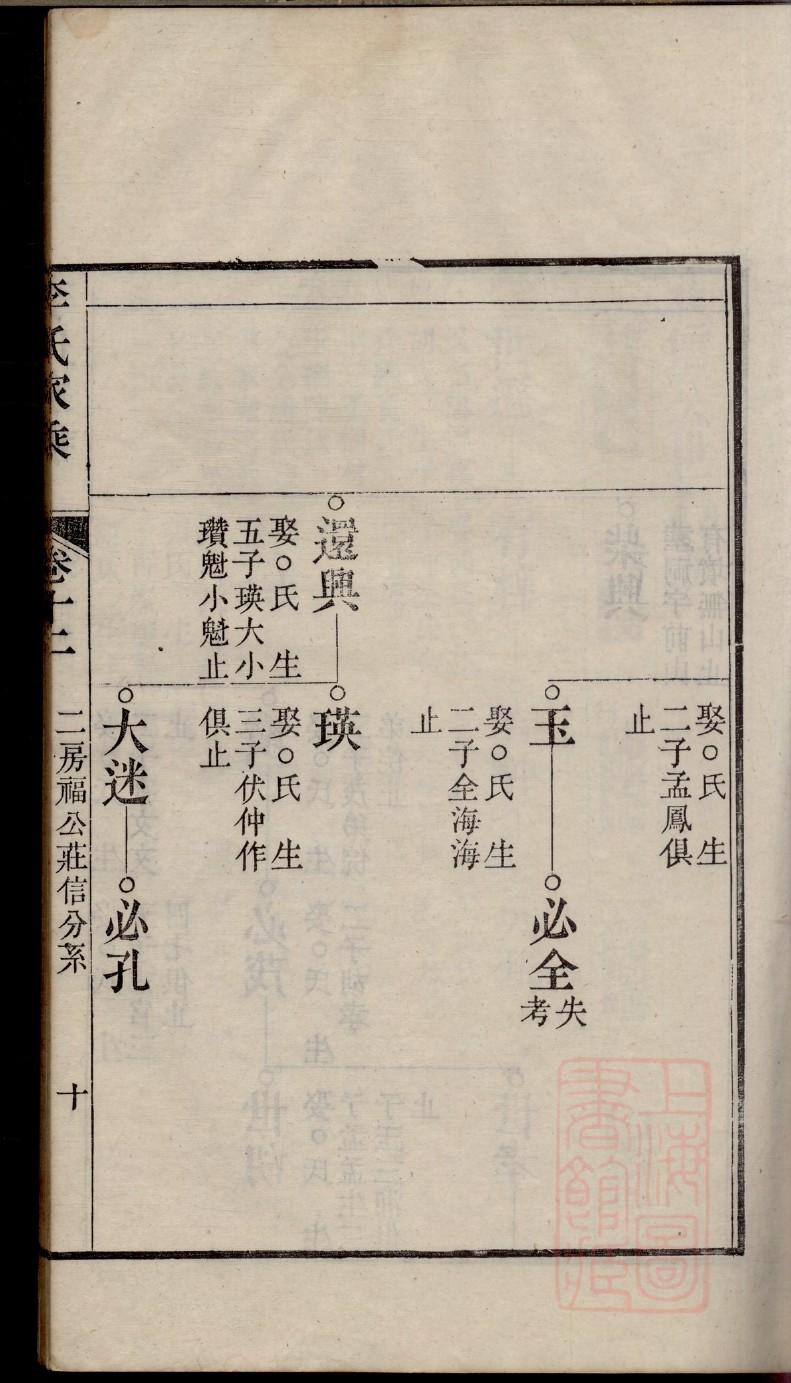 娶○氏 生
二子孟鳳俱
止
玉
娶○氏 生
二子全海海
止
必全
失考
還興
娶○氏 生
五子瑛大小
瓚魁小魁止
瑛
娶○氏 生
三子伏仲作
俱止
大迷
必孔
李氏家乘
卷十二
二房福公莊信分系
十
上海圖書館藏